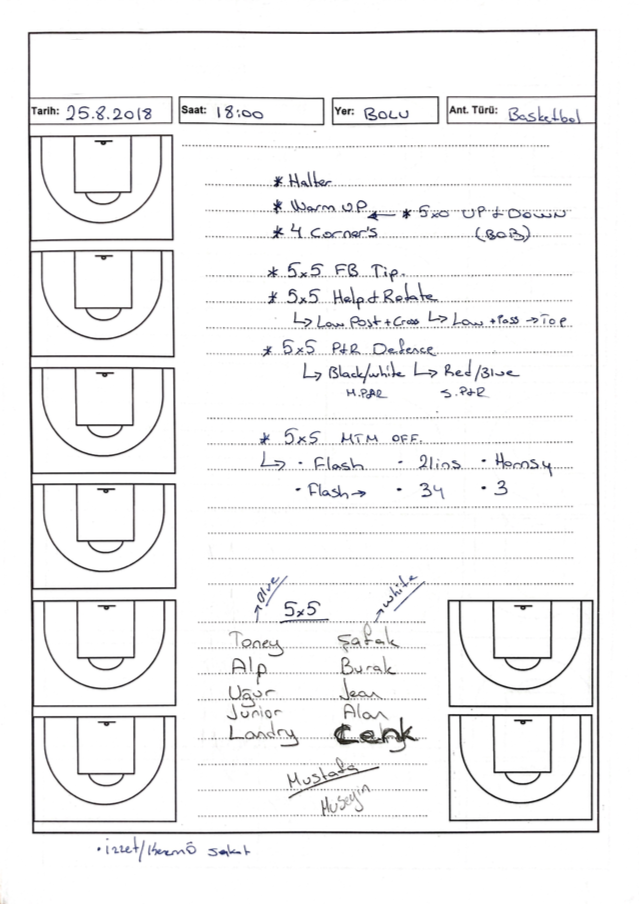 Tarih: 25.8.2018 Saat: 18:00 Yer: BOLU Ant. Türü: Basketbol
* Halter
* Warm UP ← * 5x0 UP & DOWN
* 4 Corner's (BOB)
* 5x5 FB Tip.
* 5x5 Help & Rotate
↳ Low Post + Cross ↳ Low + Pass → Top
* 5x5 P&R Defence
↳ Black/white ↳ Red/Blue
M.P&R S.P&R
* 5x5 MTM OFF.
↳ • Flash • 2lins • Hornsy
• Flash → • 34 • 3
→ Blue 5x5 → white
Toney Şafak
Alp Burak
Uğur Jean
Junior Alan
Landry Cenk
Mustafa
Huseyin
• izzet/ sakat